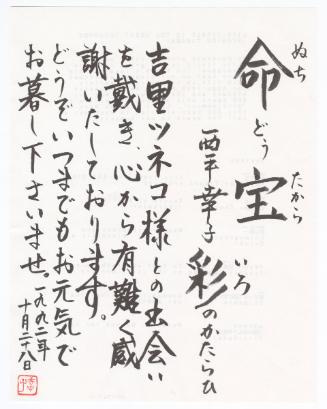 命どう宝
ぬち
たから
西平幸子 彩のかたらひ
いろ
吉里ツネコ様との出会い
を戴き、心から有難く感
謝いたしております。
どうぞいつまでもお元気で
お暮し下さいませ。
一九九二年
十月二十八日